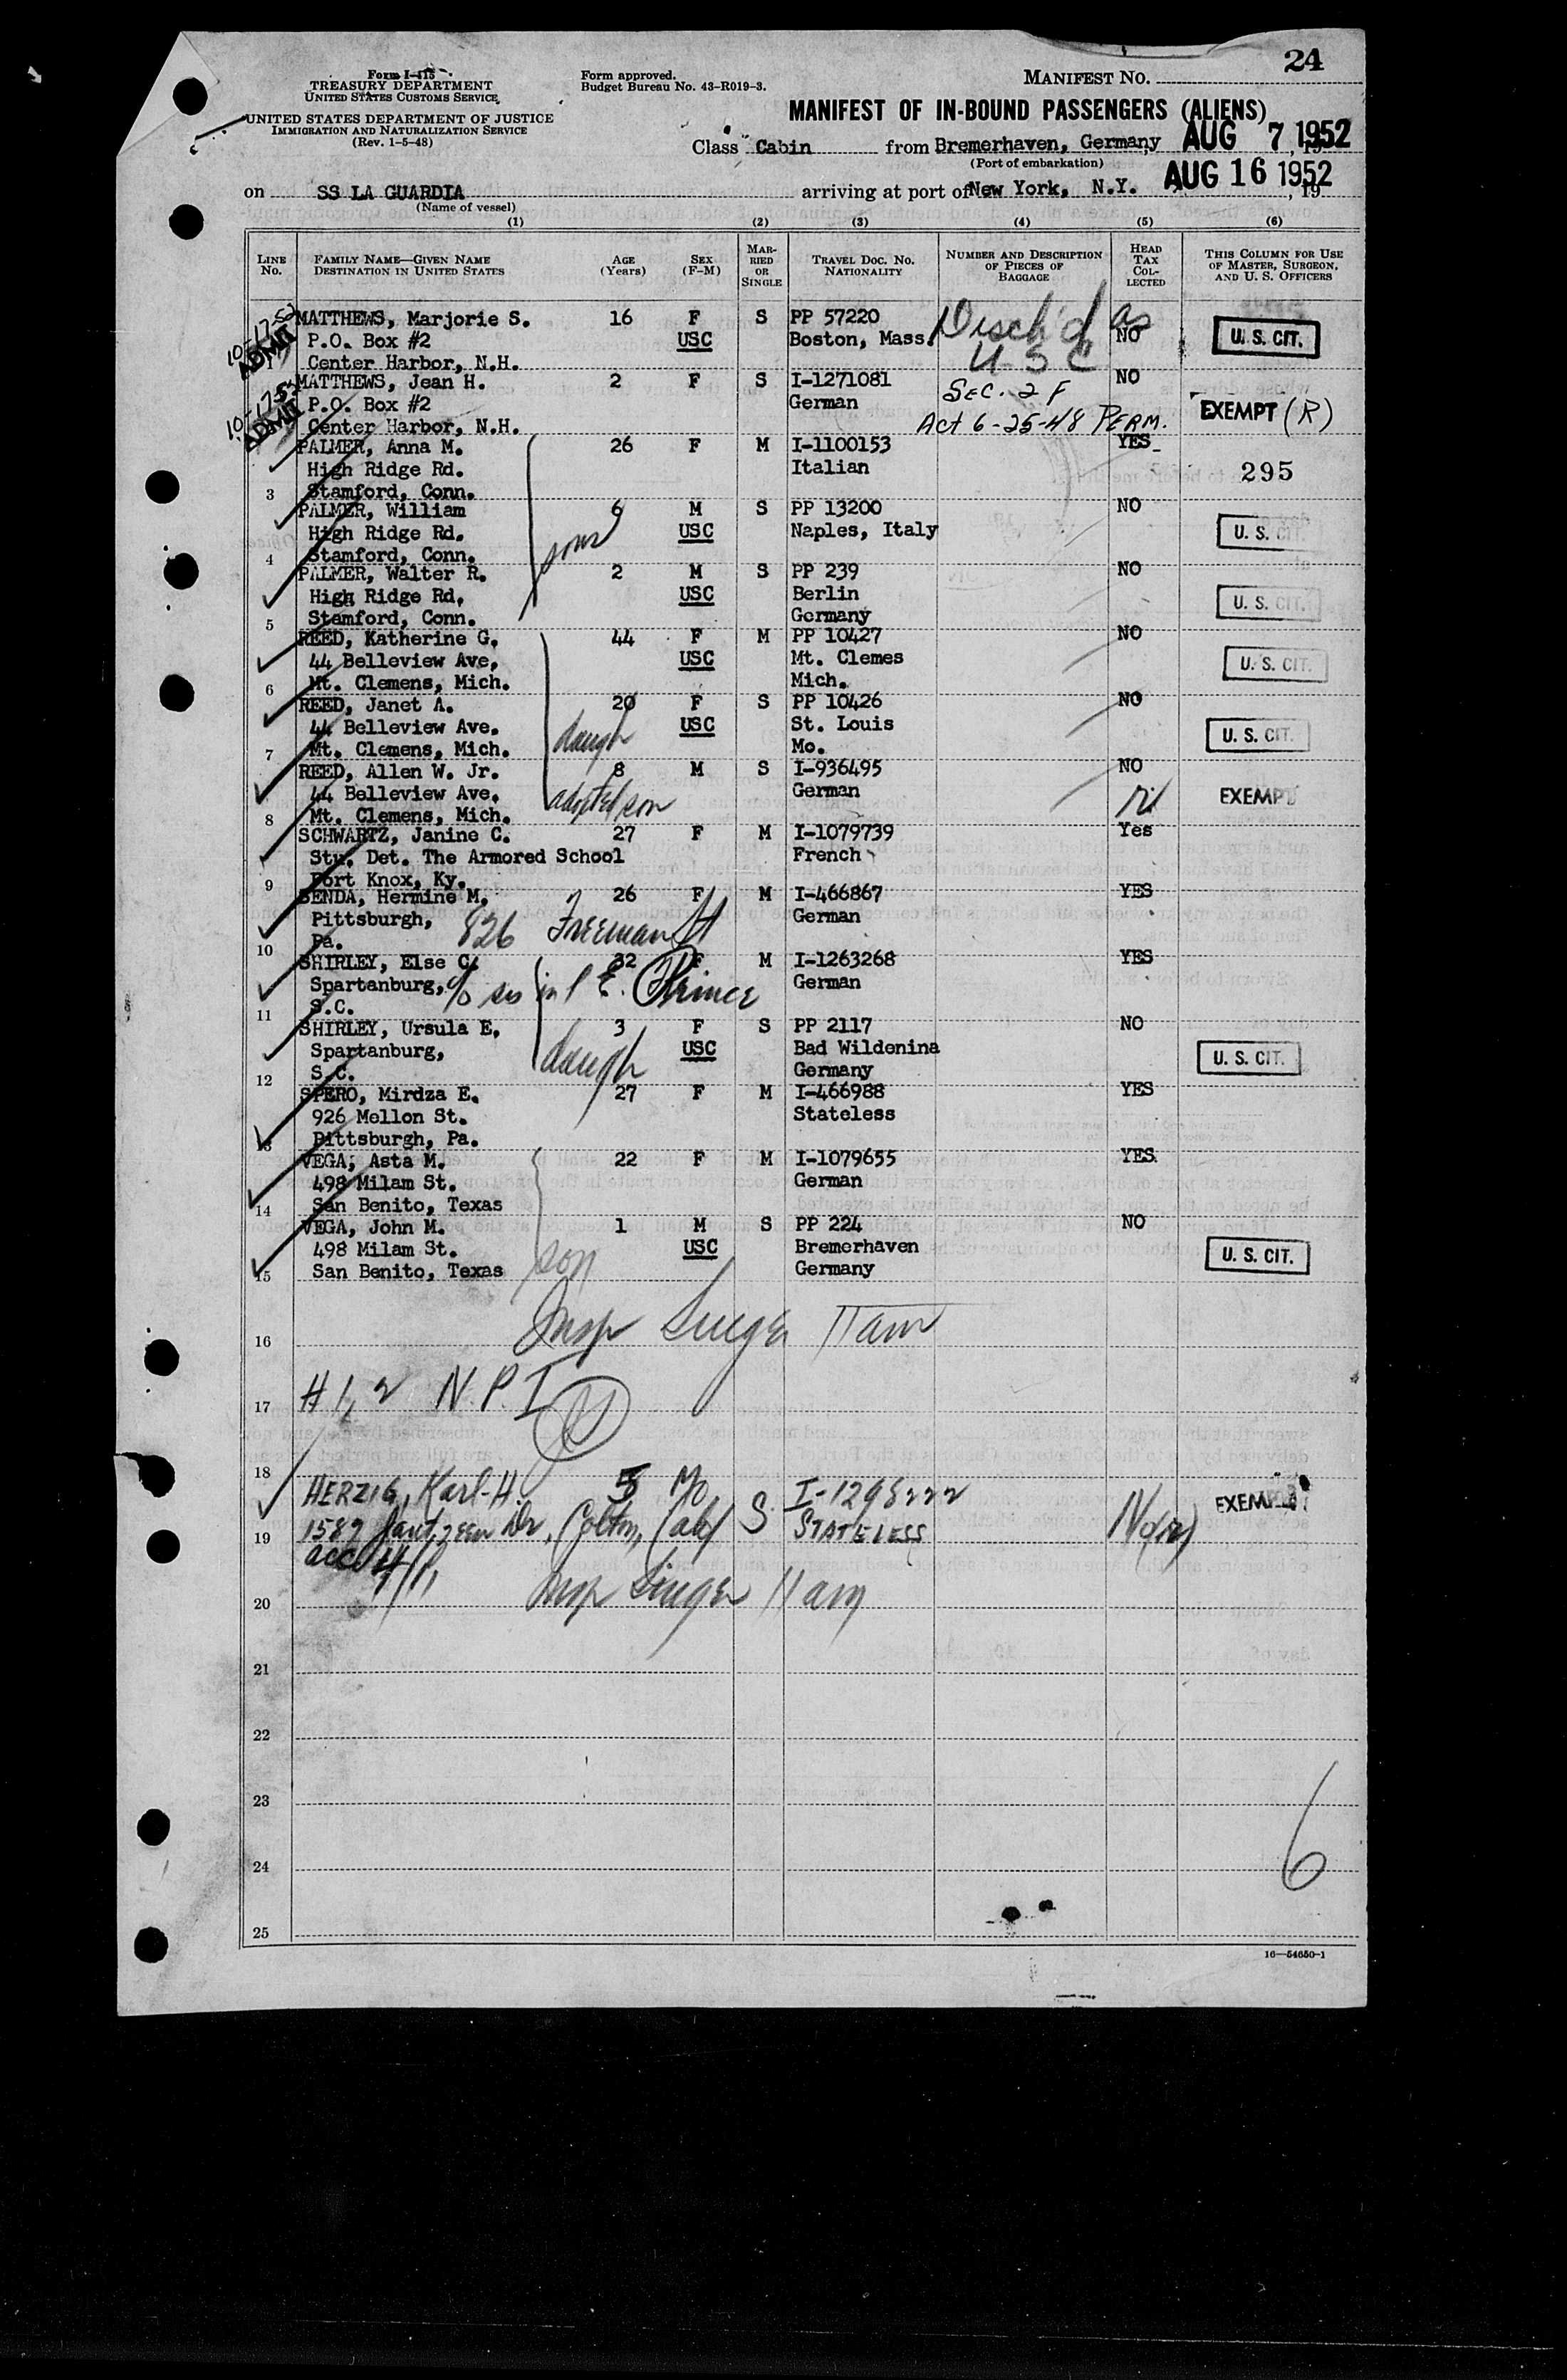 24
Form I-415
TREASURY DEPARTMENT
UNITED STATES CUSTOMS SERVICE
UNITED STATES DEPARTMENT OF JUSTICE
IMMIGRATION AND NATURALIZATION SERVICE
(Rev. 1-5-48)
Form approved.
Budget Bureau No. 43-R019-3.
MANIFEST NO.
MANIFEST OF IN-BOUND PASSENGERS (ALIENS)
Class Cabin from Bremerhaven, Germany AUG 7 1952, 19
(Port of embarkation)
on SS LA GUARDIA arriving at port of New York, N.Y. AUG 16 1952, 19
(Name of vessel)
(1) (2) (3) (4) (5) (6)
LINE NO. FAMILY NAME—GIVEN NAME DESTINATION IN UNITED STATES AGE (Years) SEX (F-M) MARRIED OR SINGLE TRAVEL DOC. NO. NATIONALITY NUMBER AND DESCRIPTION OF PIECES OF BAGGAGE HEAD TAX COLLECTED THIS COLUMN FOR USE OF MASTER, SURGEON, AND U. S. OFFICERS
10-17-52 MATTHEWS, Marjorie S. 16 F S PP 57220 Disch'd as
ADMIT P.O. Box #2 USC Boston, Mass. USC NO U. S. CIT.
1 Center Harbor, N.H.
10-17-52 MATTHEWS, Jean H. 2 F S I-1271081 SEC. 2 F NO
ADMIT P.O. Box #2 German EXEMPT (R)
Center Harbor, N.H. Act 6-25-48 PERM.
PALMER, Anna M. 26 F M I-1100153 YES
High Ridge Rd. Italian 295
3 Stamford, Conn.
PALMER, William 6 M S PP 13200 NO
High Ridge Rd. sons USC Naples, Italy U. S. CIT.
4 Stamford, Conn.
PALMER, Walter R. 2 M S PP 239 NO
High Ridge Rd, USC Berlin U. S. CIT.
5 Stamford, Conn. Germany
REED, Katherine G. 44 F M PP 10427 NO
44 Belleview Ave, USC Mt. Clemes U. S. CIT.
6 Mt. Clemens, Mich. Mich.
REED, Janet A. 20 F S PP 10426 NO
44 Belleview Ave. daugh USC St. Louis U. S. CIT.
7 Mt. Clemens, Mich. Mo.
REED, Allen W. Jr. 8 M S I-936495 NO
44 Belleview Ave. adopted son German EXEMPT
8 Mt. Clemens, Mich.
SCHWARTZ, Janine C. 27 F M I-1079739 Yes
Stu. Det. The Armored School French
9 Fort Knox, Ky.
SENDA, Hermine M. 26 F M I-466867 YES
Pittsburgh, 826 Freeman St German
10 Pa.
SHIRLEY, Else C. 32 F M I-1263268 YES
Spartanburg, c/o sis in l E. German
11 S.C.
SHIRLEY, Ursula E. 3 F S PP 2117 NO
Spartanburg, daugh USC Bad Wildenina U. S. CIT.
12 S.C. Germany
SPERO, Mirdza E. 27 F M I-466988 YES
926 Mellon St. Stateless
13 Pittsburgh, Pa.
VEGA, Asta M. 22 F M I-1079655 YES
498 Milam St. German
14 San Benito, Texas
VEGA, John M. 1 M S PP 224 NO
498 Milam St. son USC Bremerhaven U. S. CIT.
15 San Benito, Texas Germany
16 Insp Singer 11 am
17 #1, 2 N.P.I
18
HERZIG, Karl-H. 5 S I-1298222 EXEMPT
19 1589 Dr, Colton, Calif STATELESS No (R)
acc 4/11
20 Insp Singer 11 am
21
22
23
24
6
25
16—54650-1